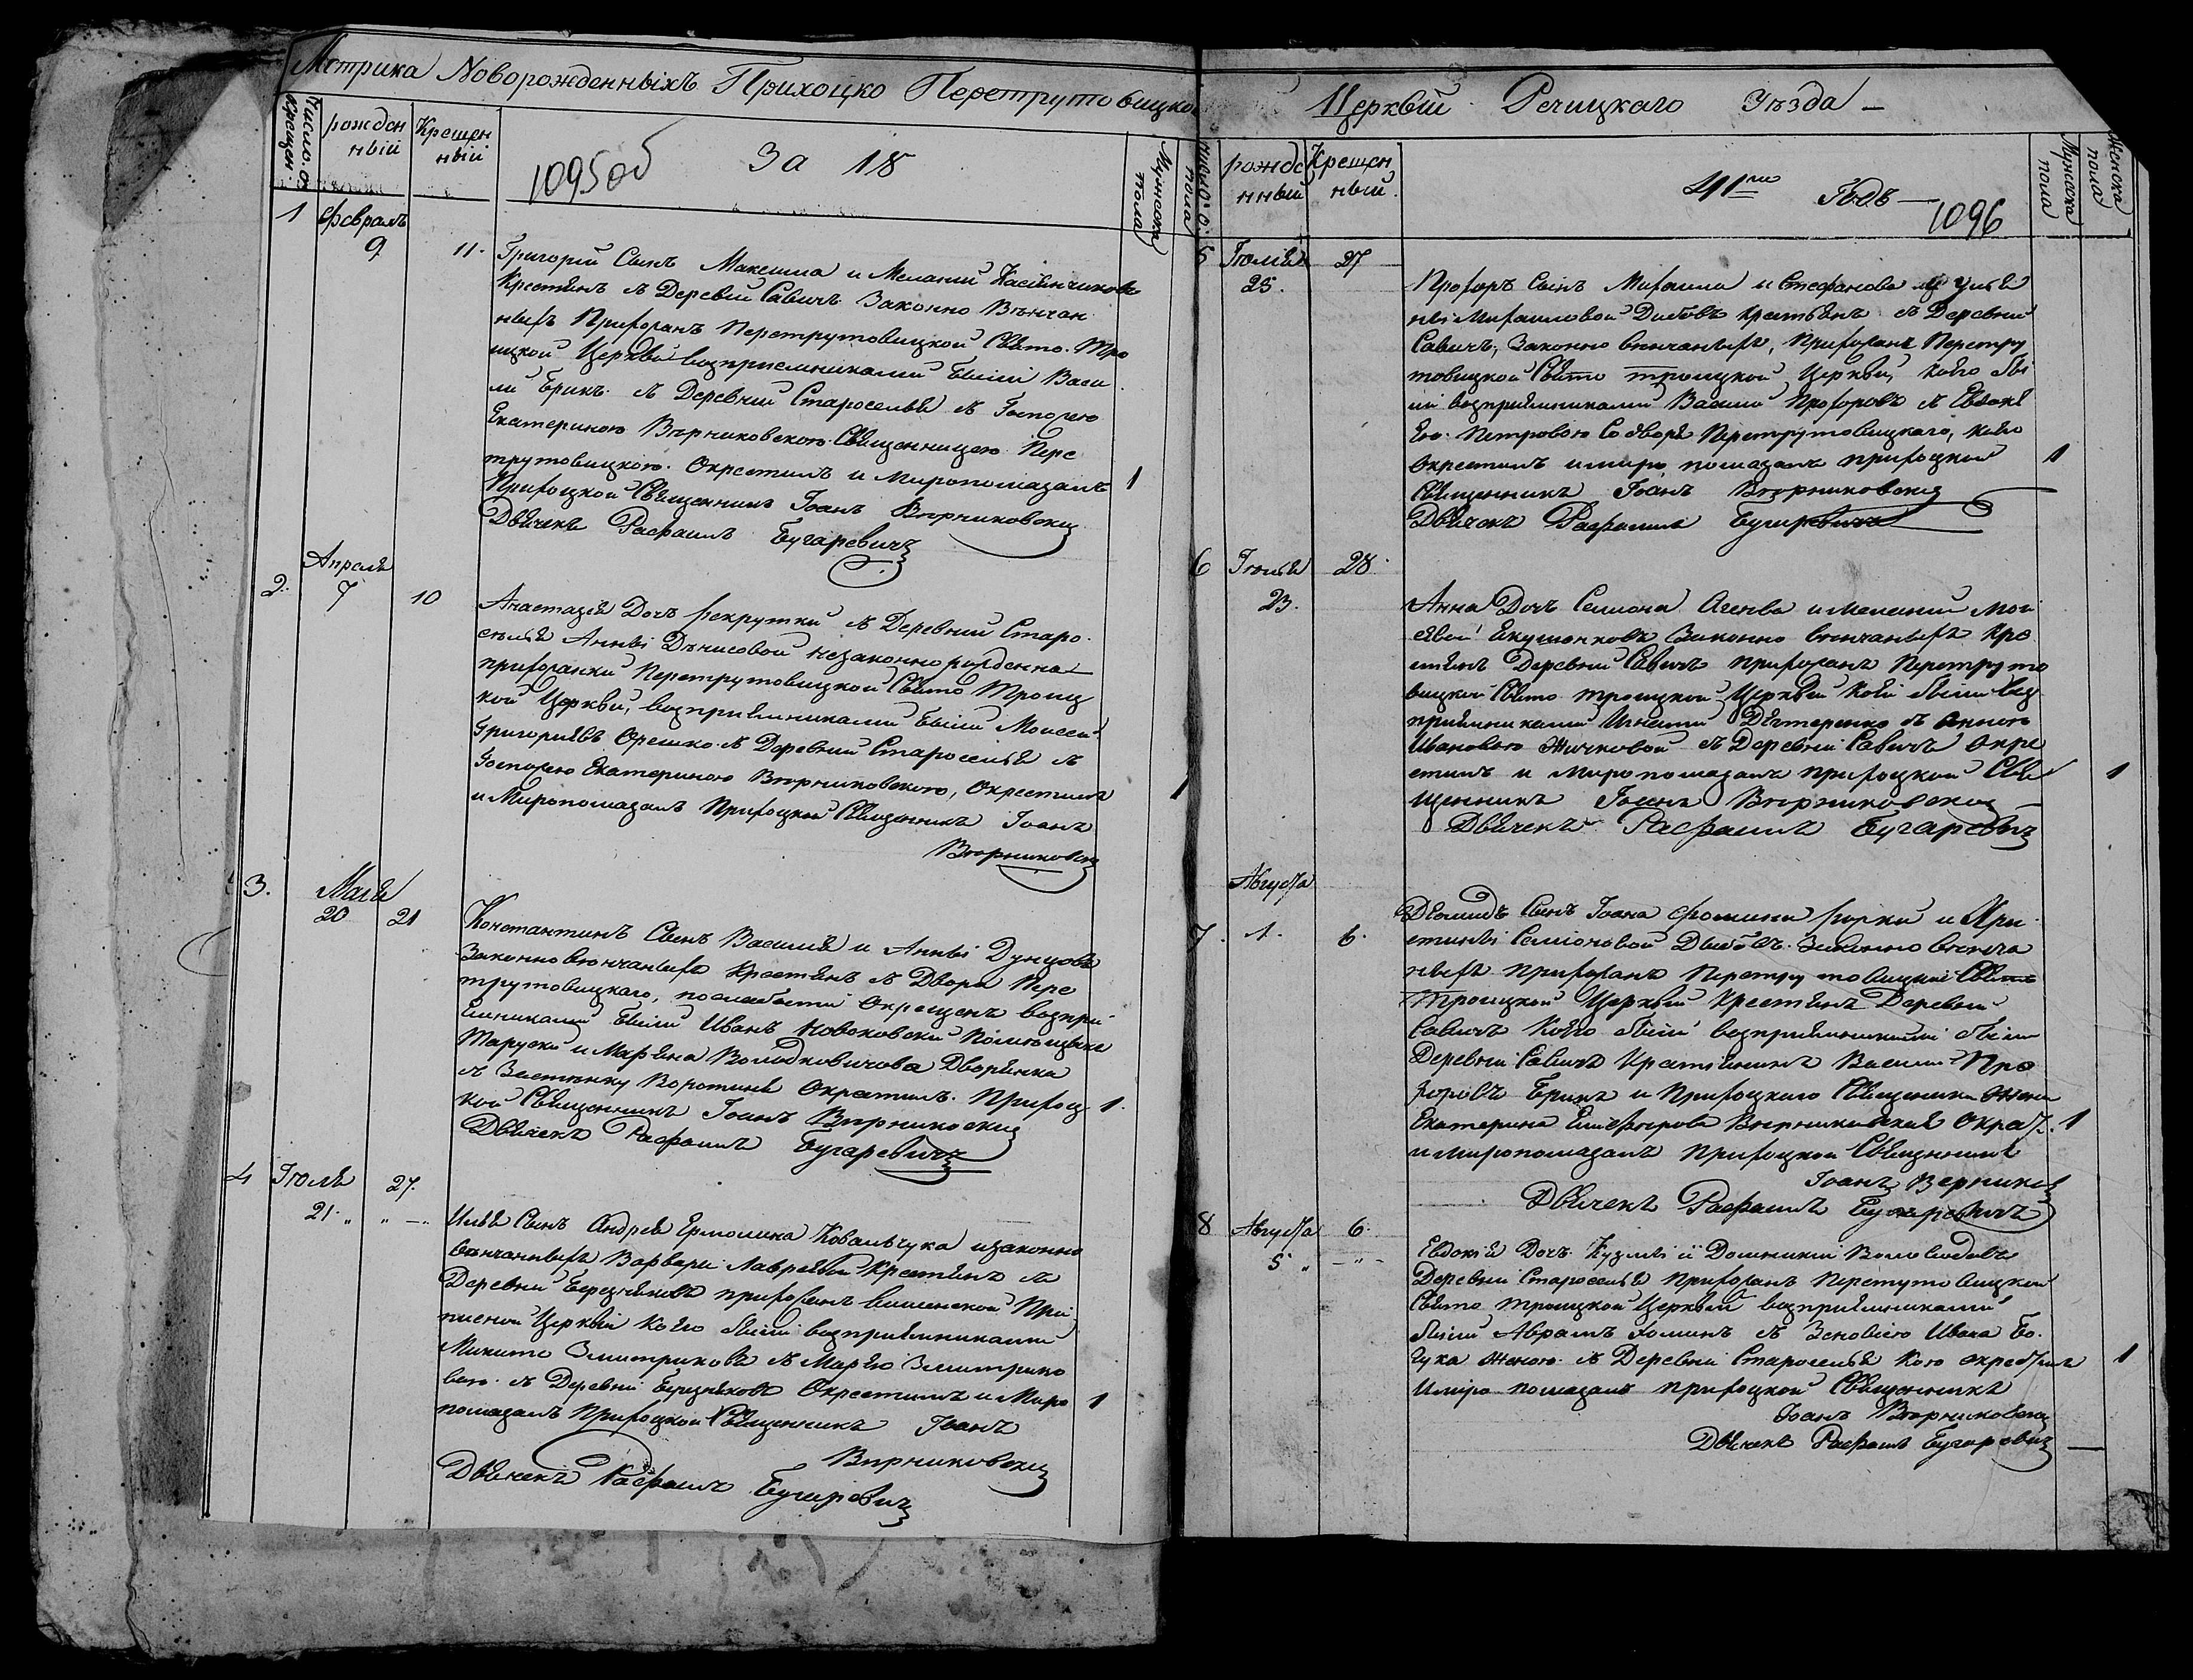 Метрика Новорожденныхъ Прихоцко Перетрутовицкой
Число. о. Крещен.
рожден
ный
Крещен
ный
1095 об
За 18
Мужеска
пола
1 Февраль
9 11.
Григорий Сынъ Максима и Меланий Касіянчиковъ
Крестянъ з Деревни Савичъ Законно Вѣнчан
ныхъ Прихожанъ Перетрутовицкой Свято. Тро
ицкой Церкви возприемниками были Васи
ли Брикъ. з Деревни Староселья з Госпожею
Екатериною Вѣрниковскою Священницею Пере
трутовицкою. Окрестилъ и Миропомазалъ 1
Прихоцкой Священникъ Іоанъ Вѣрниковски
Двячекъ Рафаилъ Бугаревичъ
Апреля
2. 7 10
Анастазія Дочъ рекрутки з Деревни Старо
селья Анны Дѣнисовой незаконно рожденна
прихожанки Перетрутовицкой Свято Троиц
кой Церкви, возприямниками были Моисей
Григориявъ Орешко з Деревни Староселья з
Госпожею Екатериною Вѣрниковского, Окрестилъ 1
и Миропомазалъ Прихоцкой Священникъ Іоанъ
Вѣрниковски
3. Мая
20 21
Константинъ Сынъ Василія и Анны Дунцовъ
Законно вѣнчаныхъ Крестянъ з Двора Пере
трутовицкаго, послабости Окрещенъ возпри
ямниками были Иванъ Новоковски
и Маряна Володковичова Дворянка
з Застѣнку Воротиня Окрестилъ. Прихоц 1.
кой Священникъ Іоанъ Вѣрниковски
Двячекъ Рафаилъ Бугаревичъ
4 Іюля 27.
21. „ „ —
Илья Сынъ Андрея Ермолика Ковальчука изаконно
вѣнчанныхъ Варвары Лаврейвы Крестянъ з
Деревни Березняковъ прихожанъ При
писной Церкви Коего были возприямниками
Микита Змитриковъ з Марьею Змитрико
вою. з Деревни Березняковъ Окрестилъ и Миро 1
помазалъ Прихоцкой Священникъ Іоанъ
Вѣрниковски
Двячекъ Рафаилъ Бугаревичъ
Церквы Речицкаго Уѣзда —
Число. о.
пола
рожде
нный
Крещен
ный.
41го Годъ —
1096
Мужеска
пола
Женска
пола
5 Іюля 27
25.
Прохоръ Сынъ Михаила и Стефанова Улья
ны Михаиловой Дыбовъ крестьянъ з Деревни
Савичъ, Законно вѣнчаныхъ, Прихожанъ Перетру
товицкой Свято троицкой Церкви, коего бы
ли возприямниками Василь Прохоровъ з Евдокі
ею Петровою Со двора Перетрутовицкаго, коего
окрестилъ имиро помазалъ прихоцкой 1
Священникъ Іоанъ Вѣрниковски
Двячекъ Рафаилъ Бугаревичъ
6 Іюля 28.
23.
Анна Дочъ Семіона Агеява и Меланий Мои
сявой Екушенковъ Законно вѣнчаныхъ Кре
стянъ Деревни Савичъ прихожанъ Перетруто
вицкой Свято троицкой Церкви Коей были воз
приямниками Игнатий Дяхтеренко з Анною
Ивановою Жичковой з Деревни Савичъ Окре
стилъ и Миропомазалъ прихоцкой Свя 1
щенникъ Іоанъ Вѣрниковски
Двячекъ Рафаилъ Бугаревичъ
Августа
7. 1. 6.
Дѣомидъ Сынъ Іоана и Хри
стины Семіоновой Дыбовъ. Законно вѣнча
ныхъ прихожанъ Перетрутовицкой Свято
Троицкой Церкви Крестянъ Деревни
Савичъ Коего были возприямниками были
Деревни Савичъ Крестіянинъ Василь Про
хоровъ Брикъ и Прихоцкаго Священника Жена
Екатерина Вѣрниковская Окрест. 1
и миропомазалъ прихоцкой Священникъ
Іоанъ Верников
Двячекъ Рафаилъ Бугаревичъ
8 Августа 6.
5 „ — „ —
Евдокія Дочъ Кузмы и Доминикии Волосюковъ
Деревни Староселья прихожанъ Перетутовицкой
Свято троицкой Церкви возприямниками
были Аврамъ Хоминъ з Зеновіею Ивана Бо.
гука Женою. з Деревни Староселья Кою окрестилъ 1
Имиро помазалъ прихоцкой Священникъ
Іоанъ Вѣрниковски
Двячекъ Рафаилъ Бугаревичъ